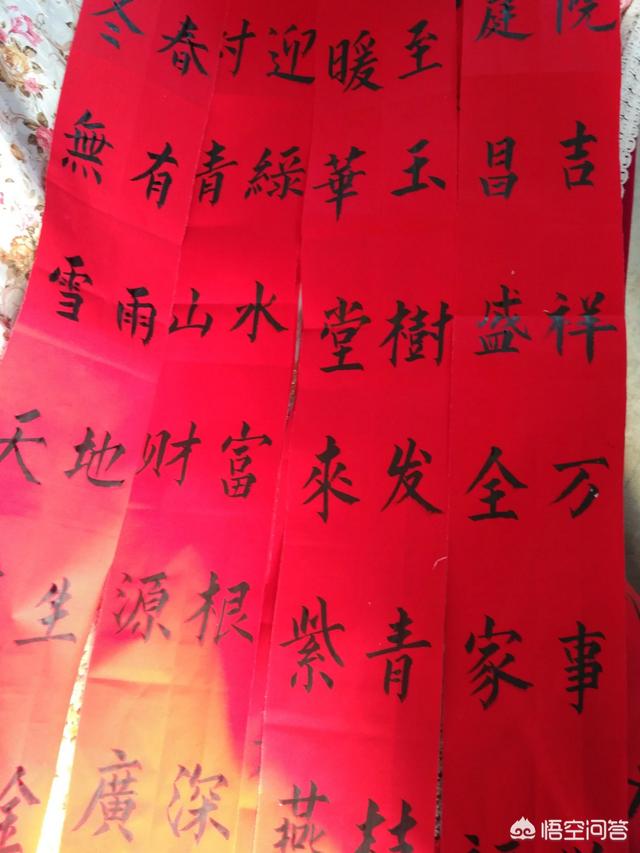 院吉祥万事
庭昌盛全家
至玉樹发青桂
暖華堂來紫燕
迎綠水富根深
青山财源廣
春有雨地生金
冬無雪天
悟空问答